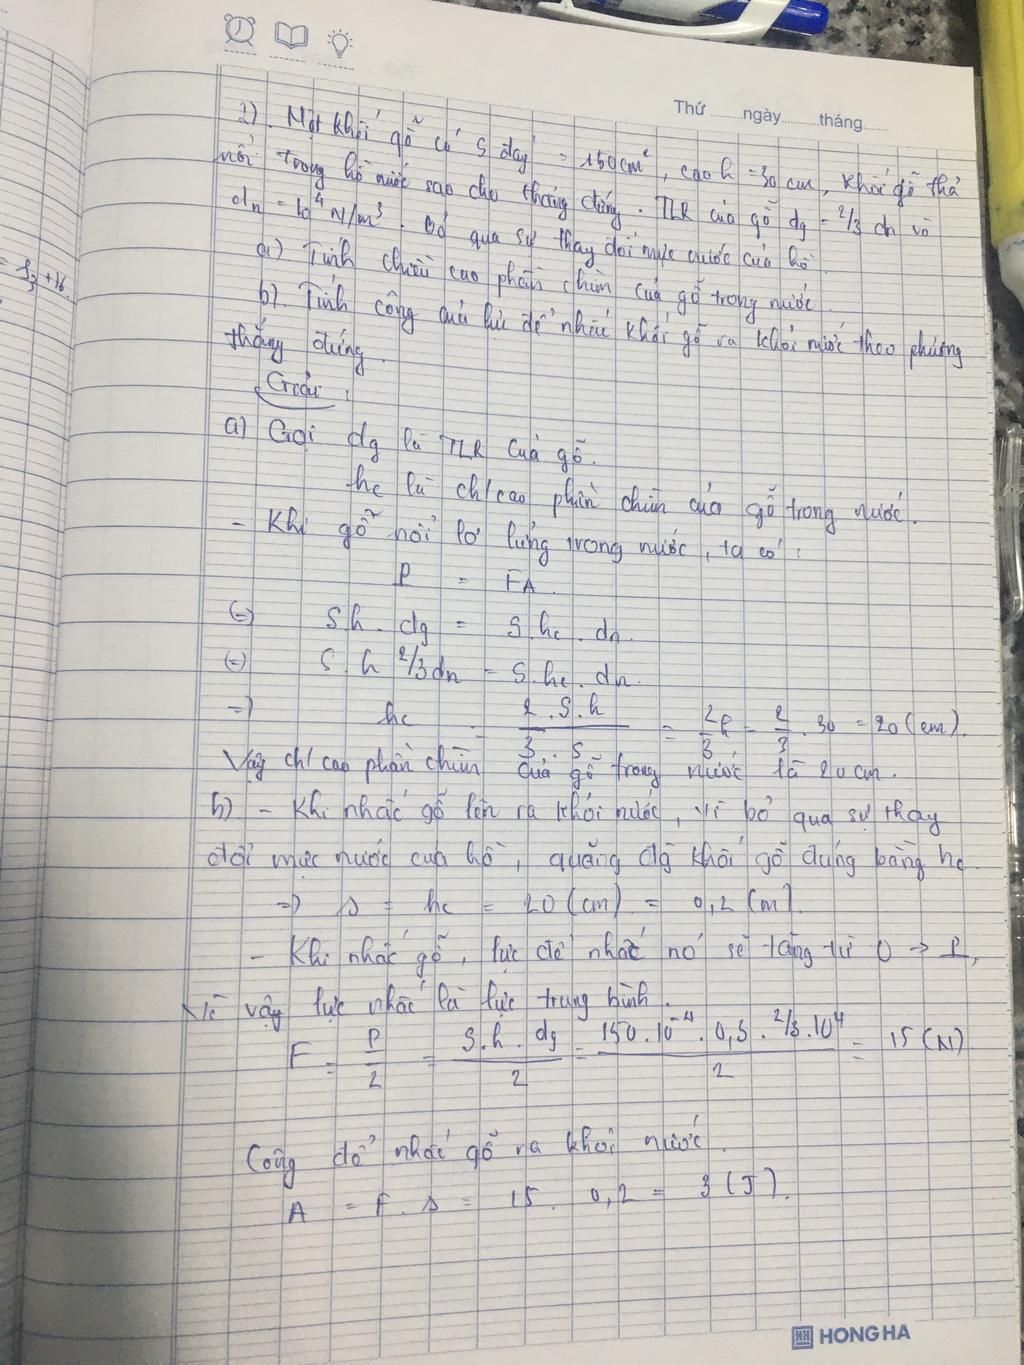 Thứ ........ngày........tháng......
2) Một khối gỗ có S đáy = 150 cm², cao h = 30 cm, khối gỗ thả
nổi trong hồ nước sao cho thẳng đứng. TLR của gỗ dg = 2/3 dn và
dn = 10⁴ N/m³. Bỏ qua sự thay đổi mực nước của hồ.
a) Tính chiều cao phần chìm của gỗ trong nước.
b) Tính công của lực để nhấc khối gỗ ra khỏi nước theo phương
thẳng đứng.
Giải:
a) Gọi dg là TLR của gỗ.
hc là ch/cao phần chìm của gỗ trong nước.
- Khi gỗ nổi lơ lửng trong nước, ta có:
P = FA
(=) S.h.dg = S.hc.dn.
(=) S.h 2/3dn = S.hc.dn.
=) hc = 2.S.h / 3.S = 2h/3 = 2/3 . 30 = 20 (cm).
Vậy ch/cao phần chìm của gỗ trong nước là 20 cm.
b) - Khi nhấc gỗ lên ra khỏi nước, vì bỏ qua sự thay
đổi mực nước của hồ, quãng đg khối gỗ đúng bằng hc
=) s = hc = 20 (cm) = 0,2 (m).
- Khi nhấc gỗ, lực để nhấc nó sẽ tăng từ 0 → P,
Vì vậy lực nhấc là lực trung bình.
F = P/2 = S.h.dg / 2 = 150.10⁻⁴.0,3.2/3.10⁴ / 2 = 15 (N)
Công để nhấc gỗ ra khỏi nước.
A = F.s = 15 . 0,2 = 3 (J).
= S3 + 16.
HH HONG HA